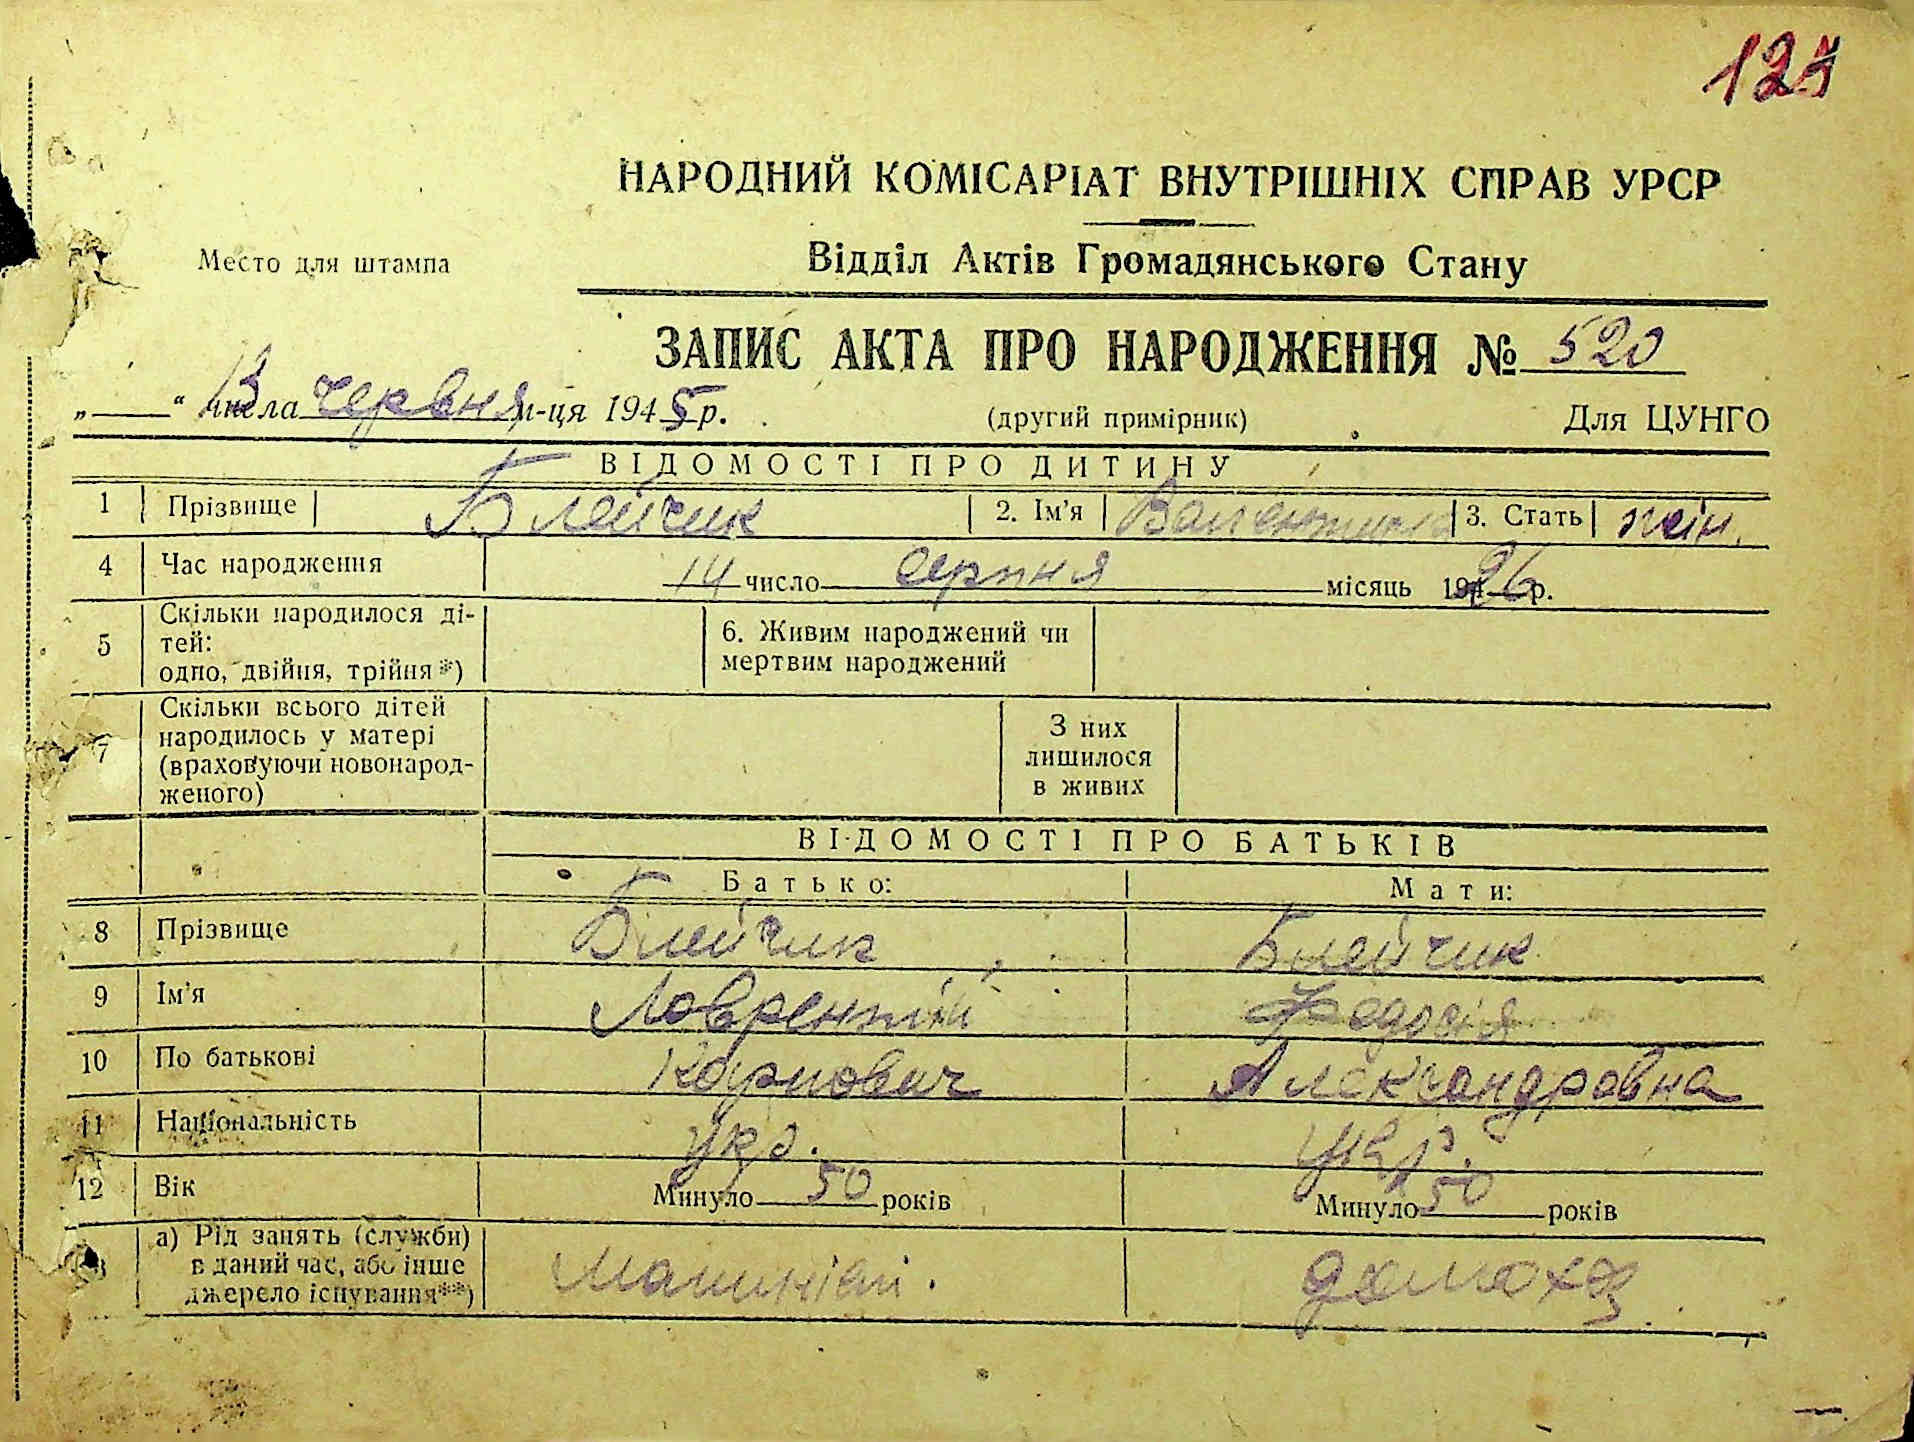 НАРОДНИЙ КОМІСАРІАТ ВНУТРІШНІХ СПРАВ УРСР
Место для штампа
Відділ Актів Громадянського Стану
ЗАПИС АКТА ПРО НАРОДЖЕННЯ № 520
„ “ 13 числа червня м-ця 1945 р. (другий примірник) Для ЦУНГО
ВІДОМОСТІ ПРО ДИТИНУ
1 Прізвище Блейчик 2. Ім'я Валентина 3. Стать жін.
4 Час народження 14 число серпня місяць 1926 р.
5 Скільки народилося ді-
тей:
одно, двійня, трійня*)
6. Живим народжений чи
мертвим народжений
7 Скільки всього дітей
народилось у матері
(враховуючи новонарод-
женого)
З них
лишилося
в живих
ВІДОМОСТІ ПРО БАТЬКІВ
Батько: Мати:
8 Прізвище Блейчик Блейчик
9 Ім'я Лаврентій Федосія
10 По батькові Карпович Александровна
11 Національність укр. укр.
12 Вік Минуло 50 років Минуло 50 років
13 а) Рід занять (служби)
в даний час, або інше
джерело існування**)
Машиніст. домохоз.